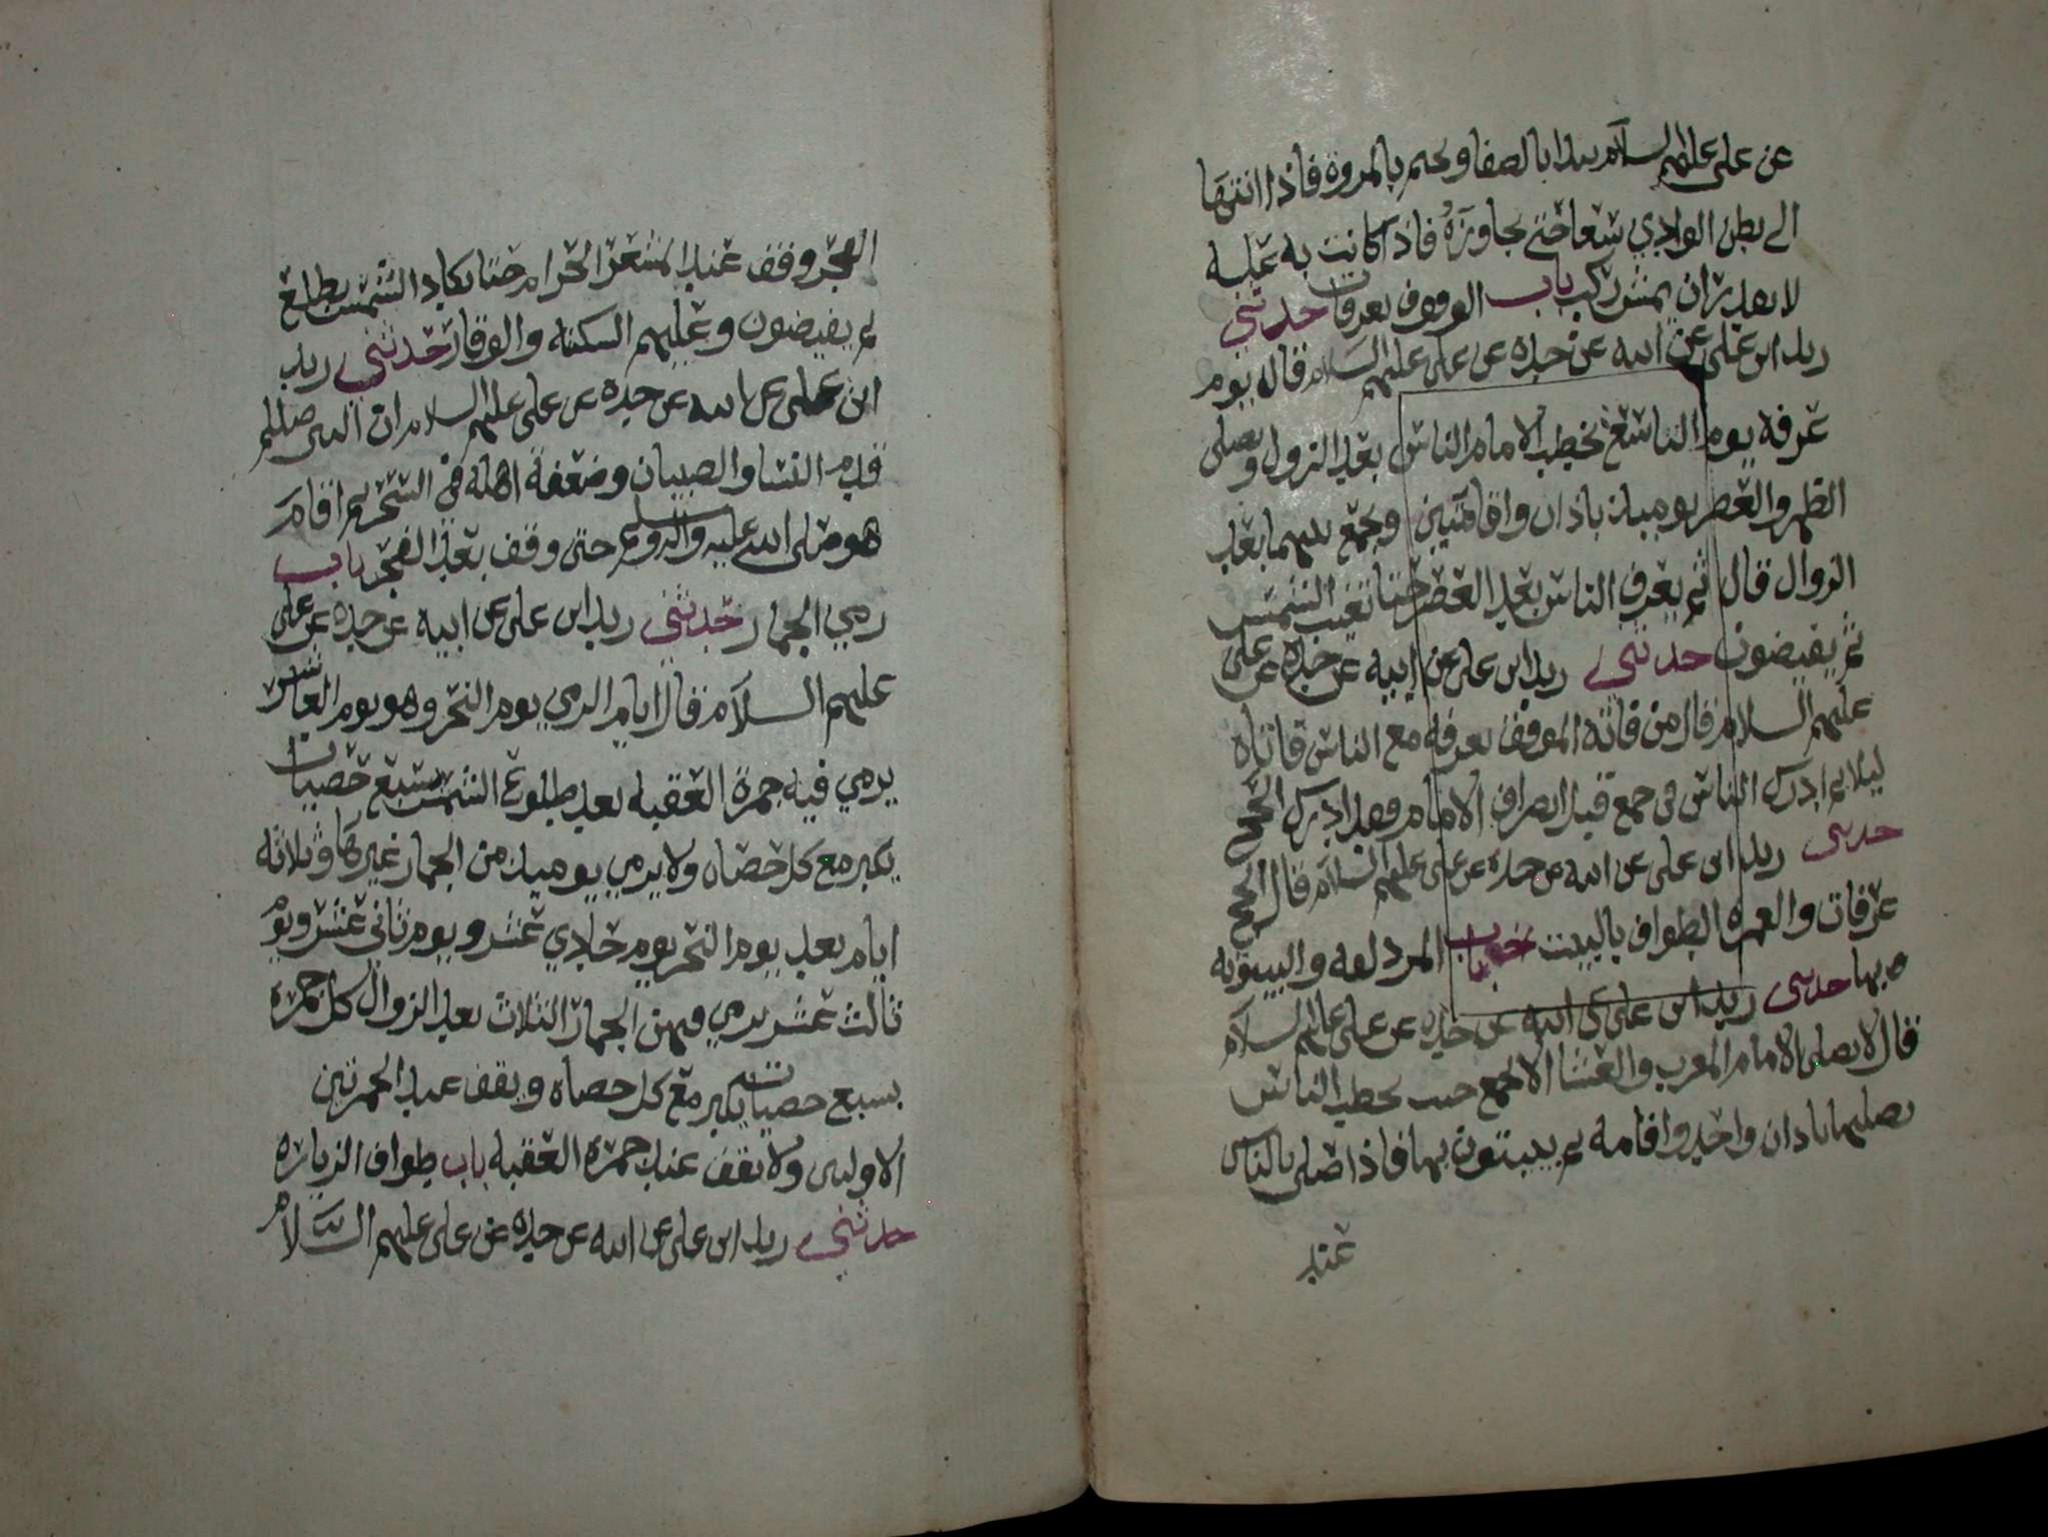 عن علي عليهم السلام يبدا بالصفا ويختم بالمروة فاذا انتها
الى بطن الوادي سعا حتى يجاوزه فاذا كانت به علة
لا يقدر ان يمشي ركب باب الوقوف بعرفات حدثني
زيد ابن علي عن ابيه عن جده عن علي عليهم السلام قال يوم
عرفه يوم التاسع يخطب الامام الناس بعد الزول ويصلي
الظهر والعصر يوميذ باذان واقامتين ويجمع بينهما بعد
الزوال قال ثم يعرف الناس بعد العصر حتا تغيب الشمس
ثم يفيضون حدثني زيد ابن علي عن ابيه عن جده عن علي
عليهم السلام قال من فاته الموقف بعرفه مع الناس فاتاه
ليلا ثم ادرك الناس في جمع قبل انصراف الامام فقد ادرك الحج
حدثني زيد ابن علي عن ابيه عن جده عن علي عليهم السلام قال الحج
عرفات والعمره الطواف بالبيت باب المزدلفه والبيتوته
بها حدثني زيد ابن علي عن ابيه عن جده عن علي عليهم السلام
قال لا يصلي الامام المغرب والعشا الا بجمع حيث يخطب الناس
يصليهما باذان واحد واقامه ثم يبيتون بها فاذا صلى بالناس
عند
الفجر وقف عند المشعر الحرام حتا تكاد الشمس تطلع
ثم يفيضون وعليهم السكنه والوقار حدثني زيد
ابن علي عن ابيه عن جده عن علي عليهم السلام ان النبي صللم
قدم النسا والصبيان وضعفة اهله في السحر ثم اقام
هو صلى الله عليه واله وسلم حتى وقف بعد الفجر باب
رمي الجمار حدثني زيد ابن علي عن ابيه عن جده عن علي
عليهم السلام قال ايام الرمي يوم النحر وهو يوم العاشر
يرمي فيه جمرة العقبه بعد طلوع الشمس بسبع حصيات
يكبر مع كل حصاه ولا يرمي يوميذ من الجمار غيرها وثلاثه
ايام بعد يوم النحر يوم حادي عشر ويوم ثاني عشر ويوم
ثالث عشر يرمي فيهن الجمار الثلاث بعد الزوال كل جمره
بسبع حصيات يكبر مع كل حصاه ويقف عند الجمرتين
الاوليين ولا يقف عند جمره العقبه باب طواف الزياره
حدثني زيد ابن علي عن ابيه عن جده عن علي عليهم السلام